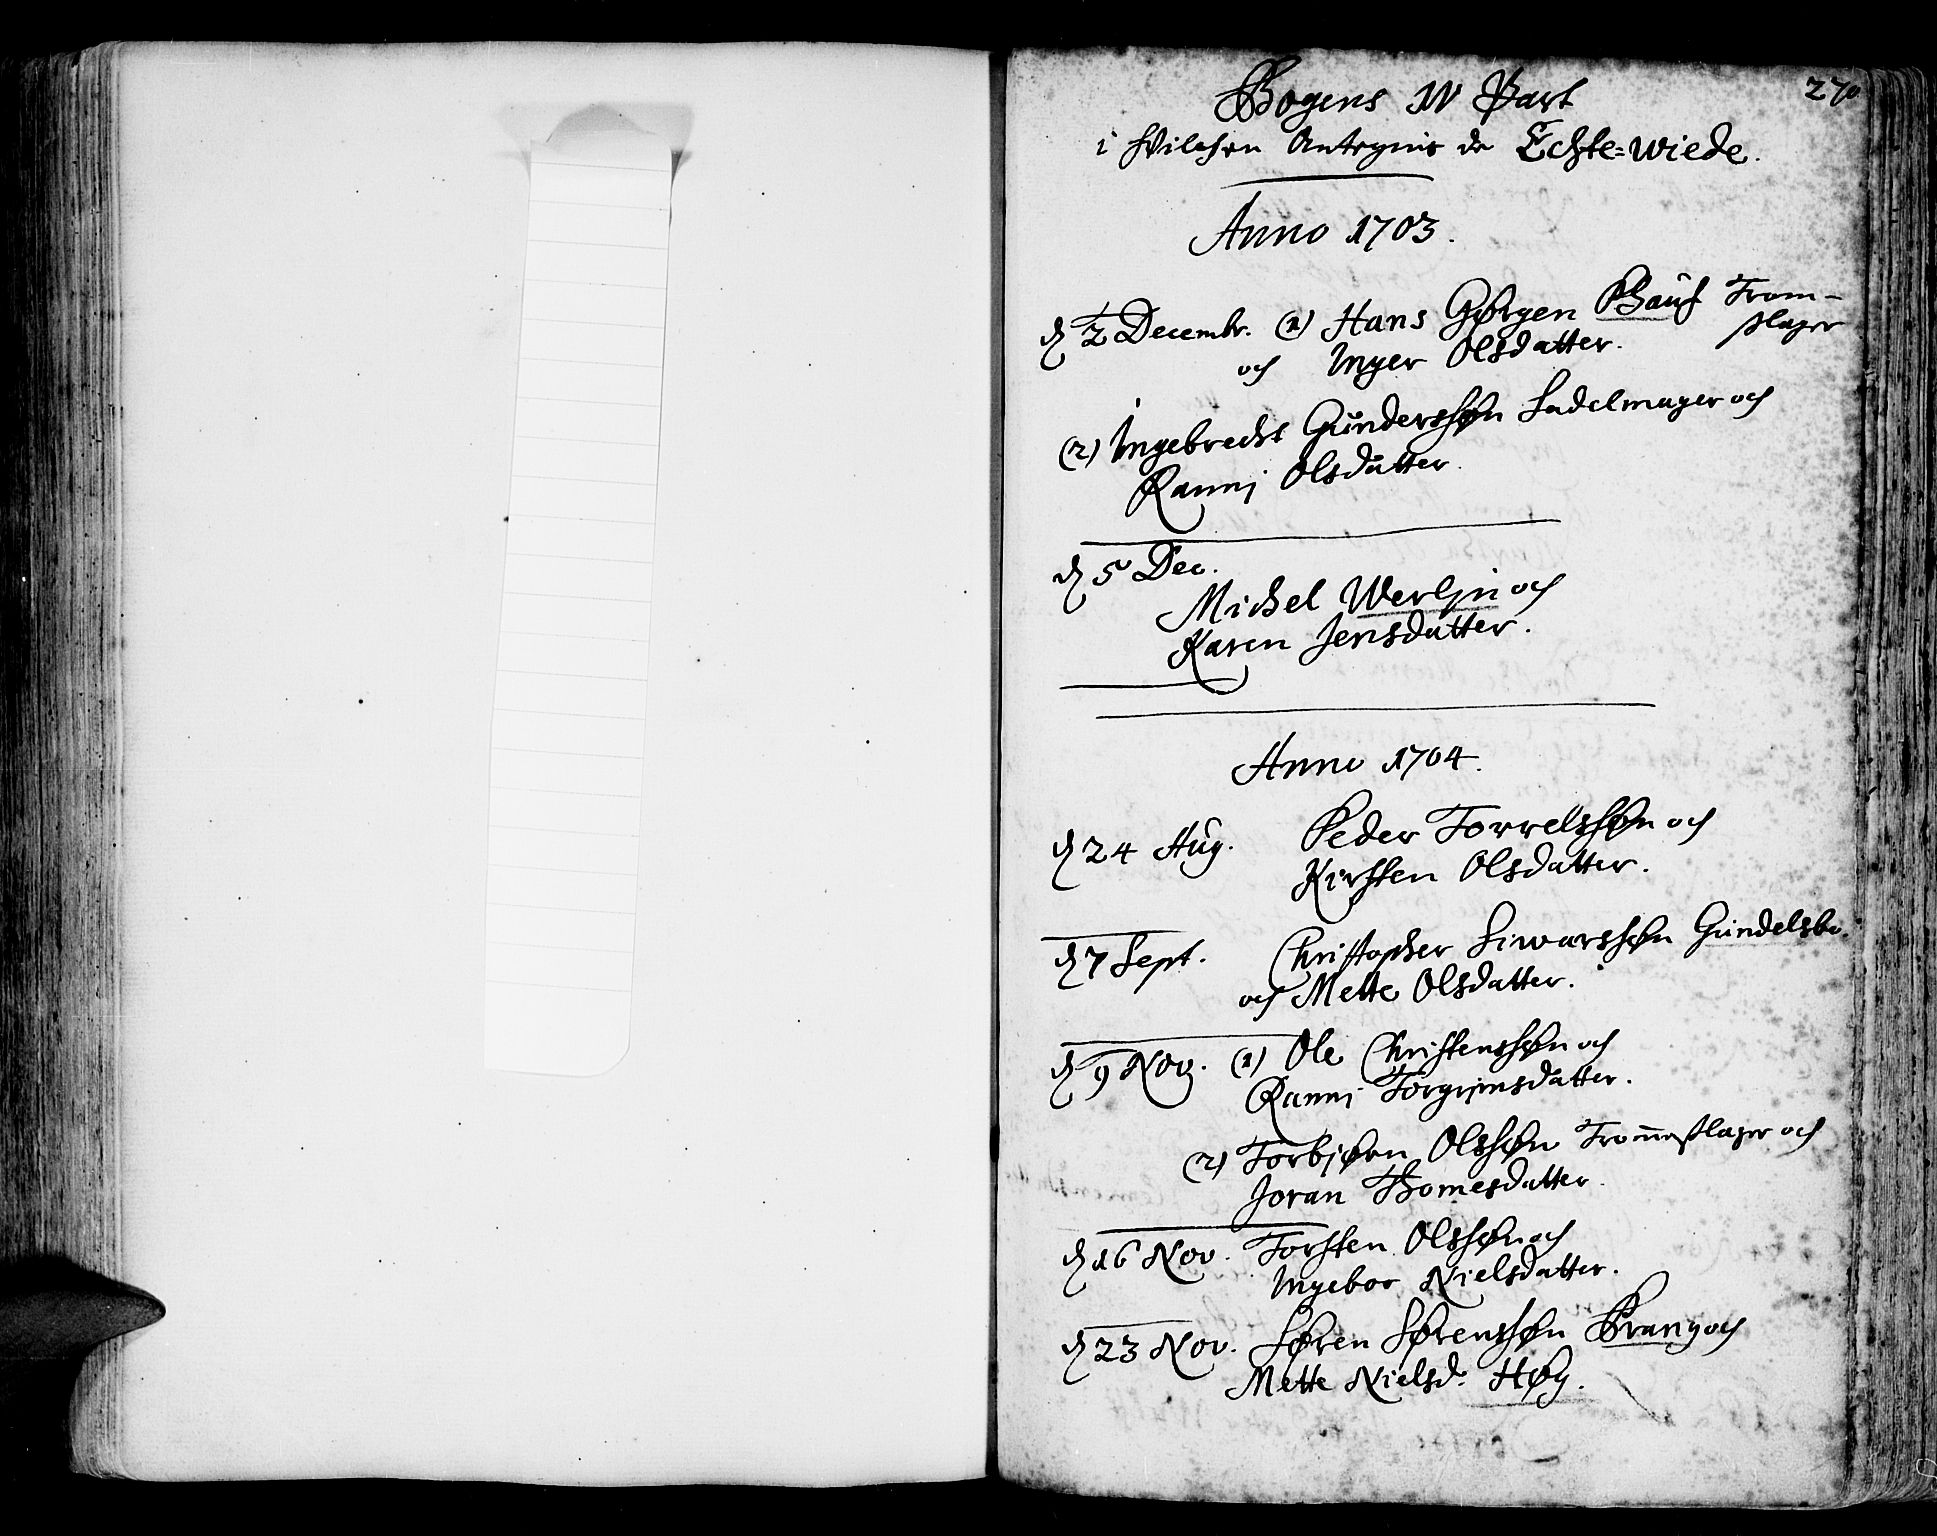 270
Bogens IV Part
i hvilchen Antegnis de Echte-wiede.
Anno 1703.
d 2 Decembr. (1) Hans Gørgen Bauf Trom-
slager
och Inger Olsdatter.
(2) Ingebrecht Gundersøn Sadelmager och
Ranni Olsdatter.
d 5 Dec.
Michel Werljin och
Karen Jensdatter.
Anno 1704.
d 24 Aug. Peder Torrelssøn och
Kirsten Olsdatter.
d 7 Sept. Christopher Siwarssøn Gundelsbo.
och Mette Olsdatter.
d 9 Nov. (1) Ole Christenssøn och
Ranni Torgrimsdatter.
(2) Torbjørn Olssøn Trom̅eslager och
Joran Thomesdatter.
d 16 Nov. Torsten Olssøn och
Ingebor Nielsdatter.
d 23 Nov. Søren Sørenssøn Prang och
Mette Nielsd: Høg.